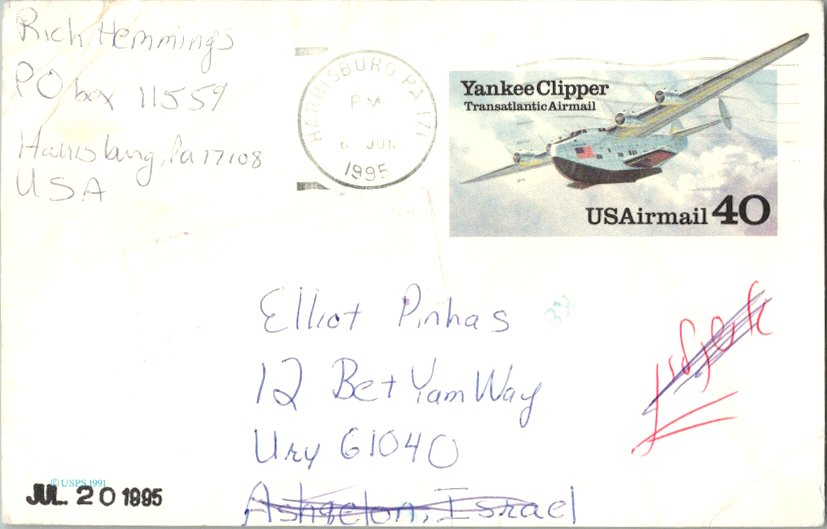 Rich Hemmings
PO box 11559
Harrisburg, Pa 17108
USA
HARRISBURG PA 171
PM
JUN
1995
Yankee Clipper
Transatlantic Airmail
USAirmail 40
Elliot Pinhas
12 Bet Yam Way
Ury 61040
Ashqelon, Israel
© USPS 1991
JUL 20 1995